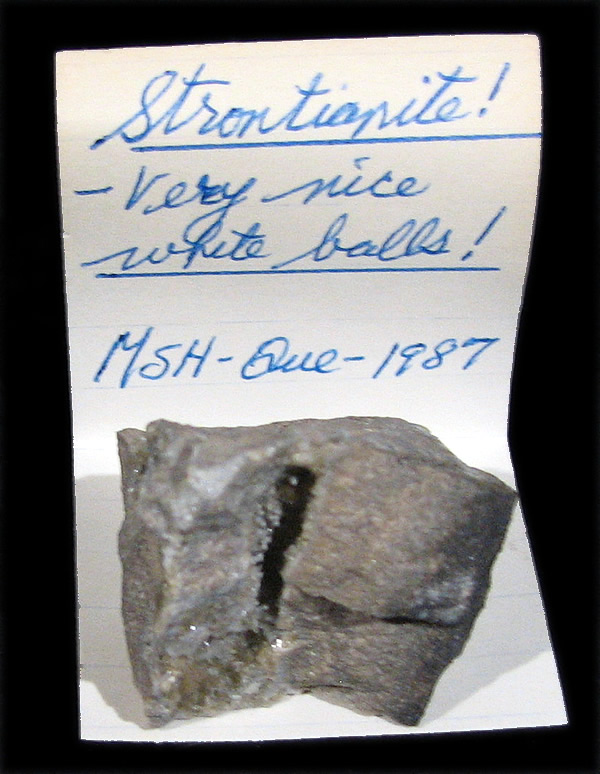 Strontianite!
- Very nice
white balls!
MSH - Que - 1987